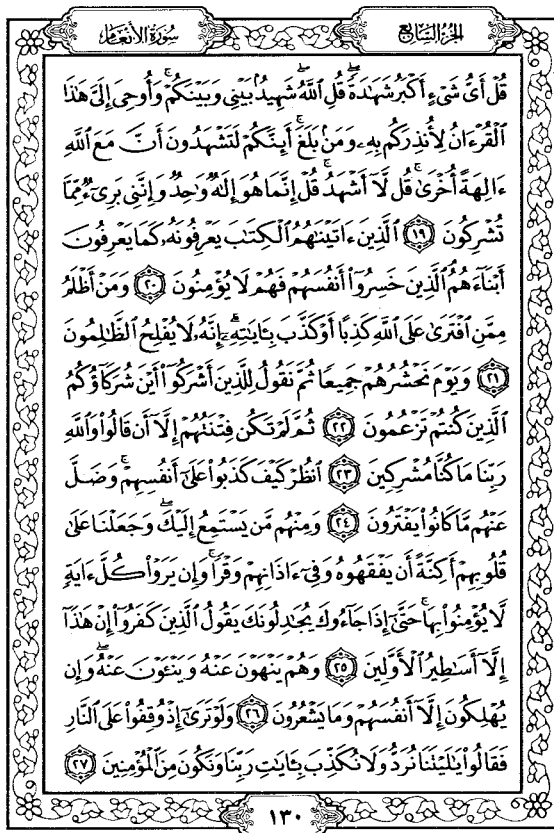 سورة الأنعام
الجزء السابع
قُلْ أَىُّ شَىْءٍ أَكْبَرُ شَهَٰدَةً ۖ قُلِ ٱللَّهُ ۖ شَهِيدٌۢ بَيْنِى وَبَيْنَكُمْ ۚ وَأُوحِىَ إِلَىَّ هَٰذَا
ٱلْقُرْءَانُ لِأُنذِرَكُم بِهِۦ وَمَنۢ بَلَغَ ۚ أَئِنَّكُمْ لَتَشْهَدُونَ أَنَّ مَعَ ٱللَّهِ
ءَالِهَةً أُخْرَىٰ ۚ قُل لَّآ أَشْهَدُ ۚ قُلْ إِنَّمَا هُوَ إِلَٰهٌ وَٰحِدٌ وَإِنَّنِى بَرِىٓءٌ مِّمَّا
تُشْرِكُونَ ١٩ ٱلَّذِينَ ءَاتَيْنَٰهُمُ ٱلْكِتَٰبَ يَعْرِفُونَهُۥ كَمَا يَعْرِفُونَ
أَبْنَآءَهُمُ ٱلَّذِينَ خَسِرُوٓا۟ أَنفُسَهُمْ فَهُمْ لَا يُؤْمِنُونَ ٢٠ وَمَنْ أَظْلَمُ
مِمَّنِ ٱفْتَرَىٰ عَلَى ٱللَّهِ كَذِبًا أَوْ كَذَّبَ بِـَٔايَٰتِهِۦٓ ۗ إِنَّهُۥ لَا يُفْلِحُ ٱلظَّٰلِمُونَ
٢١ وَيَوْمَ نَحْشُرُهُمْ جَمِيعًا ثُمَّ نَقُولُ لِلَّذِينَ أَشْرَكُوٓا۟ أَيْنَ شُرَكَآؤُكُمُ
ٱلَّذِينَ كُنتُمْ تَزْعُمُونَ ٢٢ ثُمَّ لَمْ تَكُن فِتْنَتُهُمْ إِلَّآ أَن قَالُوا۟ وَٱللَّهِ
رَبِّنَا مَا كُنَّا مُشْرِكِينَ ٢٣ ٱنظُرْ كَيْفَ كَذَبُوا۟ عَلَىٰٓ أَنفُسِهِمْ ۚ وَضَلَّ
عَنْهُم مَّا كَانُوا۟ يَفْتَرُونَ ٢٤ وَمِنْهُم مَّن يَسْتَمِعُ إِلَيْكَ ۖ وَجَعَلْنَا عَلَىٰ
قُلُوبِهِمْ أَكِنَّةً أَن يَفْقَهُوهُ وَفِىٓ ءَاذَانِهِمْ وَقْرًا ۚ وَإِن يَرَوْا۟ كُلَّ ءَايَةٍ
لَّا يُؤْمِنُوا۟ بِهَا ۚ حَتَّىٰٓ إِذَا جَآءُوكَ يُجَٰدِلُونَكَ يَقُولُ ٱلَّذِينَ كَفَرُوٓا۟ إِنْ هَٰذَآ
إِلَّآ أَسَٰطِيرُ ٱلْأَوَّلِينَ ٢٥ وَهُمْ يَنْهَوْنَ عَنْهُ وَيَنْـَٔوْنَ عَنْهُ ۖ وَإِن
يُهْلِكُونَ إِلَّآ أَنفُسَهُمْ وَمَا يَشْعُرُونَ ٢٦ وَلَوْ تَرَىٰٓ إِذْ وُقِفُوا۟ عَلَى ٱلنَّارِ
فَقَالُوا۟ يَٰلَيْتَنَا نُرَدُّ وَلَا نُكَذِّبَ بِـَٔايَٰتِ رَبِّنَا وَنَكُونَ مِنَ ٱلْمُؤْمِنِينَ ٢٧
١٣٠